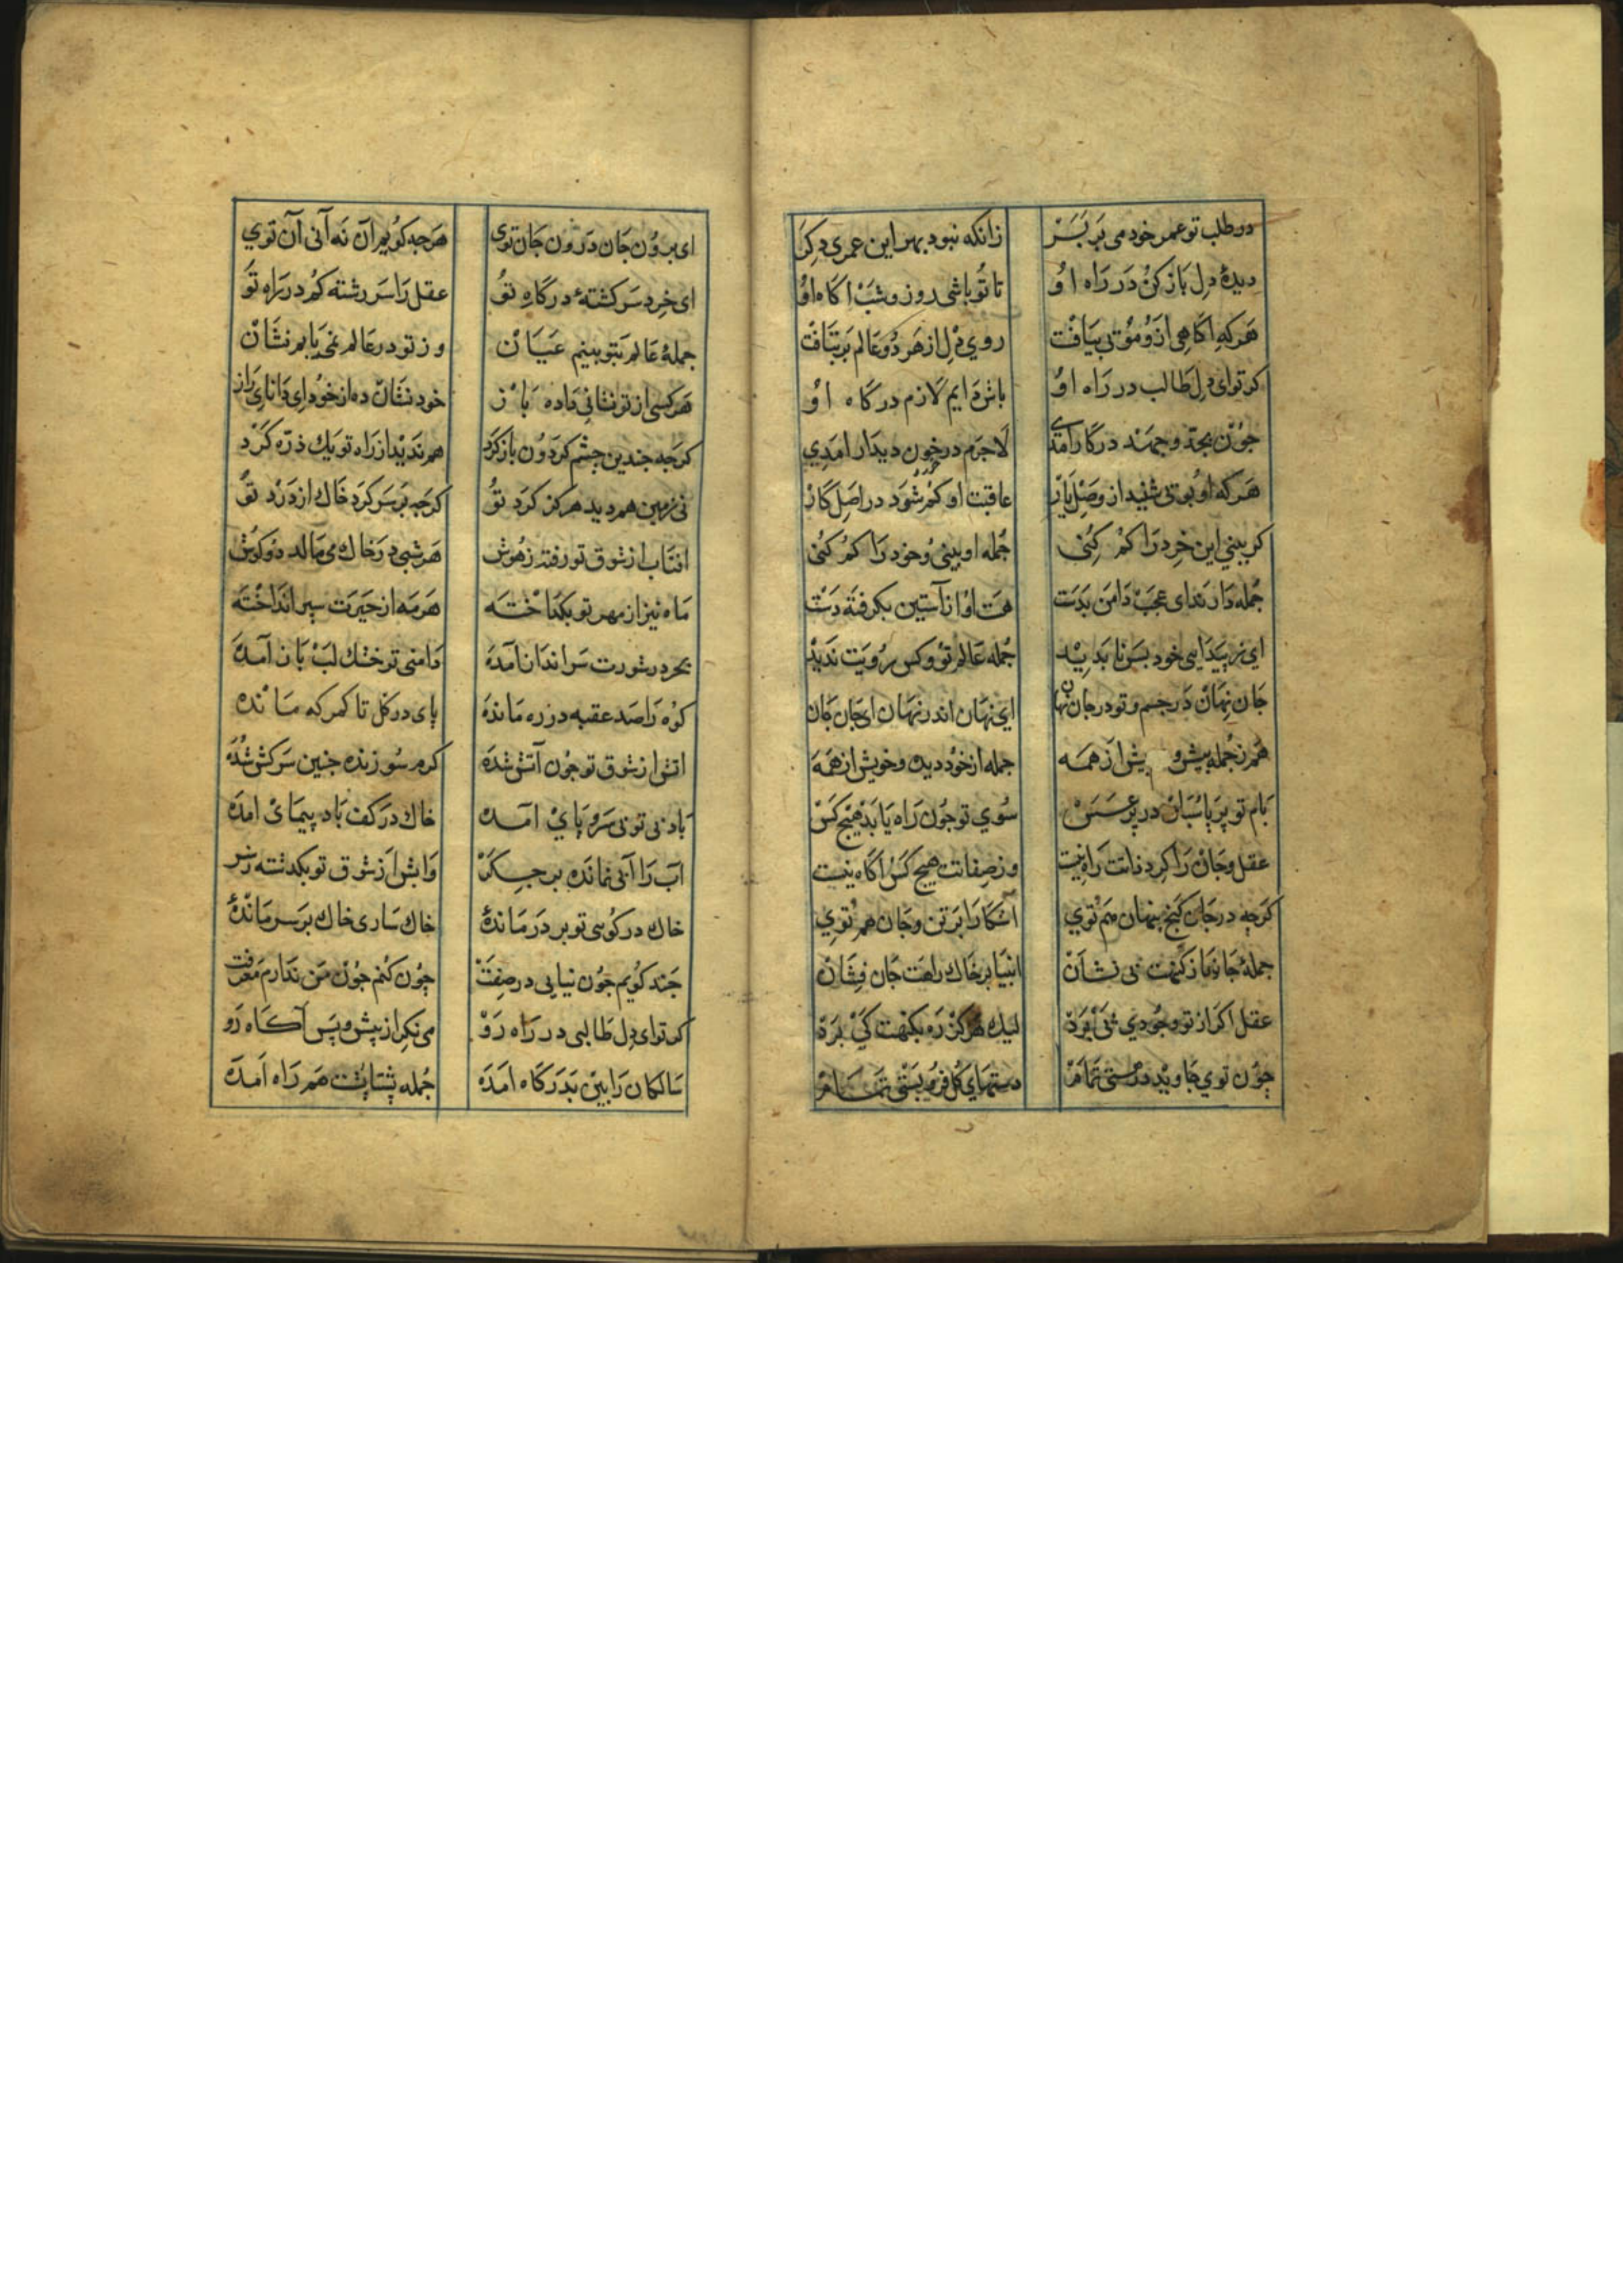 در طلب تو عمر خود می بر بسر زانکه نبود بهر این عمری دکر
دیدهٔ دل باز کن در راه او تا تو باشی روز و شب اکاه او
هرکه اکاهی ازو موئی بیافت روی دل از هر دو عالم بر بتافت
کر تو ای دل طالب در راه او باش دایم لازم درکاه او
جون بجد و جهد در کار امدی لاجرم در خون دیدار امدی
هرکه او بوئی شنید از وصل یار عاقبت او کم شود در اصل کار
کر ببینی این خرد را کم کنی جمله او بینی و خود را کم کنی
جمله دارند ای عجب دامن بدست هست او از آستین بکرفته دست
ای ز پیدایی خود بس نابدید جمله عالم تو و کس رویت ندید
جان نهان در جسم و تو در جان نهان ای نهان اندر نهان ای جان جان
هم ز جمله بیش و پیش از همه جمله از خود دیده و خویش از همه
بام تو پر پاسبان در پر عسس سوی تو جون راه یابد هیج کس
عقل و جان را کرد ذاتت راه نیست وز صفاتت هیچ کس اکاه نیست
کرچه در جان کنج پنهان هم توی آشکارا بر تن و جان هم توی
جملهٔ جانها ز کنهت بی نشان انبیا بر خاک راهت جان فشان
عقل اکر از تو وجودی پی برد لیک هرکز ره بکنهت کی برد
چون توی جاوید در هستی تمام دستهای کل فرو بستی تمام
ای برون جان درون جان توی هرجه کویم آن نه آنی آن توی
ای خرد سرکشتهٔ درکاه تو عقل را سر رشته کم در راه تو
جملهٔ عالم بتو بینم عیان وز تو در عالم نمی یابم نشان
هرکسی از تو نشانی داده باز خود نشان ده از خود ای دانای راز
کرجه جندین جشم کردون باز کرد هم ندید از راه تو یک ذره کرد
نی زمین هم دید هرکز کرد تو کرجه بر سر کرد خاک از درد تو
افتاب از شوق تو رفته ز هوش هر شبی در خاک می مالد دو کوش
ماه نیز از مهر تو بکداخته هر مه از حیرت سپر انداخته
بحر در شورت سرانداز آمده دامنی تر خشک لب باز آمده
کوه را صد عقبه در ره مانده پای در کل تا کمرکه مانده
اتش از شوق تو جون آتش شده کرم سوزنده جنین سرکش شده
باد بی تو بی سر و پای آمده خاک در کف باد پیمای امده
آب را آبی نمانده بر جکر وابش از شوق تو بکدشته ز سر
خاک در کوی تو بر در ماندهٔ خاک ساری خاک بر سر ماندهٔ
جند کویم جون نیایی در صفت چون کنم جون من ندارم معرفت
کر تو ای دل طالبی در راه رو می نکر از پیش و پس آکاه رو
سالکان را بین بدرکاه امده جمله پشتاپشت هم راه آمده